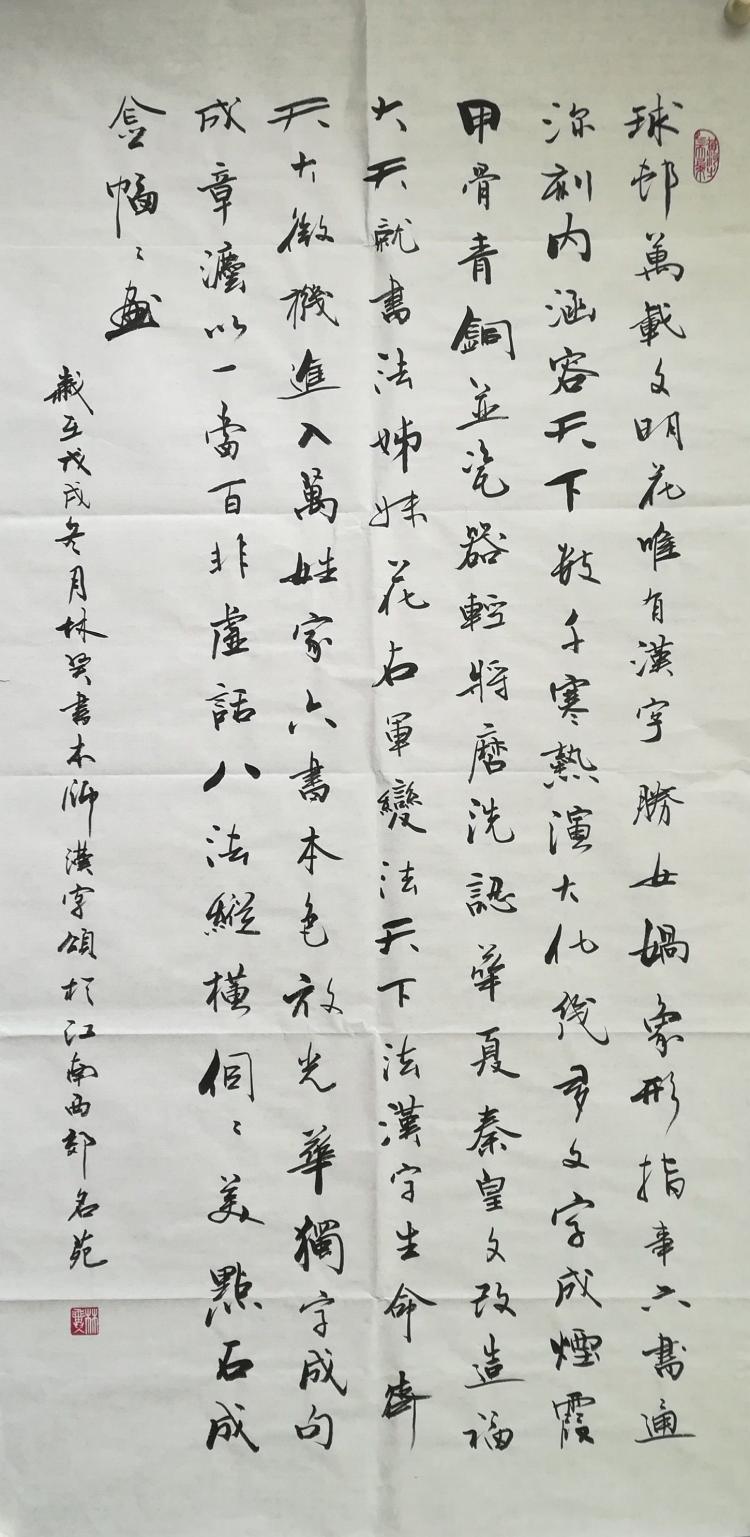 球邨萬載文明花唯有漢字勝女媧象形指事六書通
深刻内涵容天下數千寒熱演大代幾多文字成煙霞
甲骨青銅並瓷器輕將磨洗認華夏秦皇文改造福
大天就書法姊妹花右軍變法天下法漢字生命齊
天大微機進入萬姓家六書本色放光華獨字成句
成章瀍以一當百非虛話八法縱橫個〻美點石成
金幅〻畫
歲在戊戌冬月林巽書木師漢字頌於江南西郊名苑